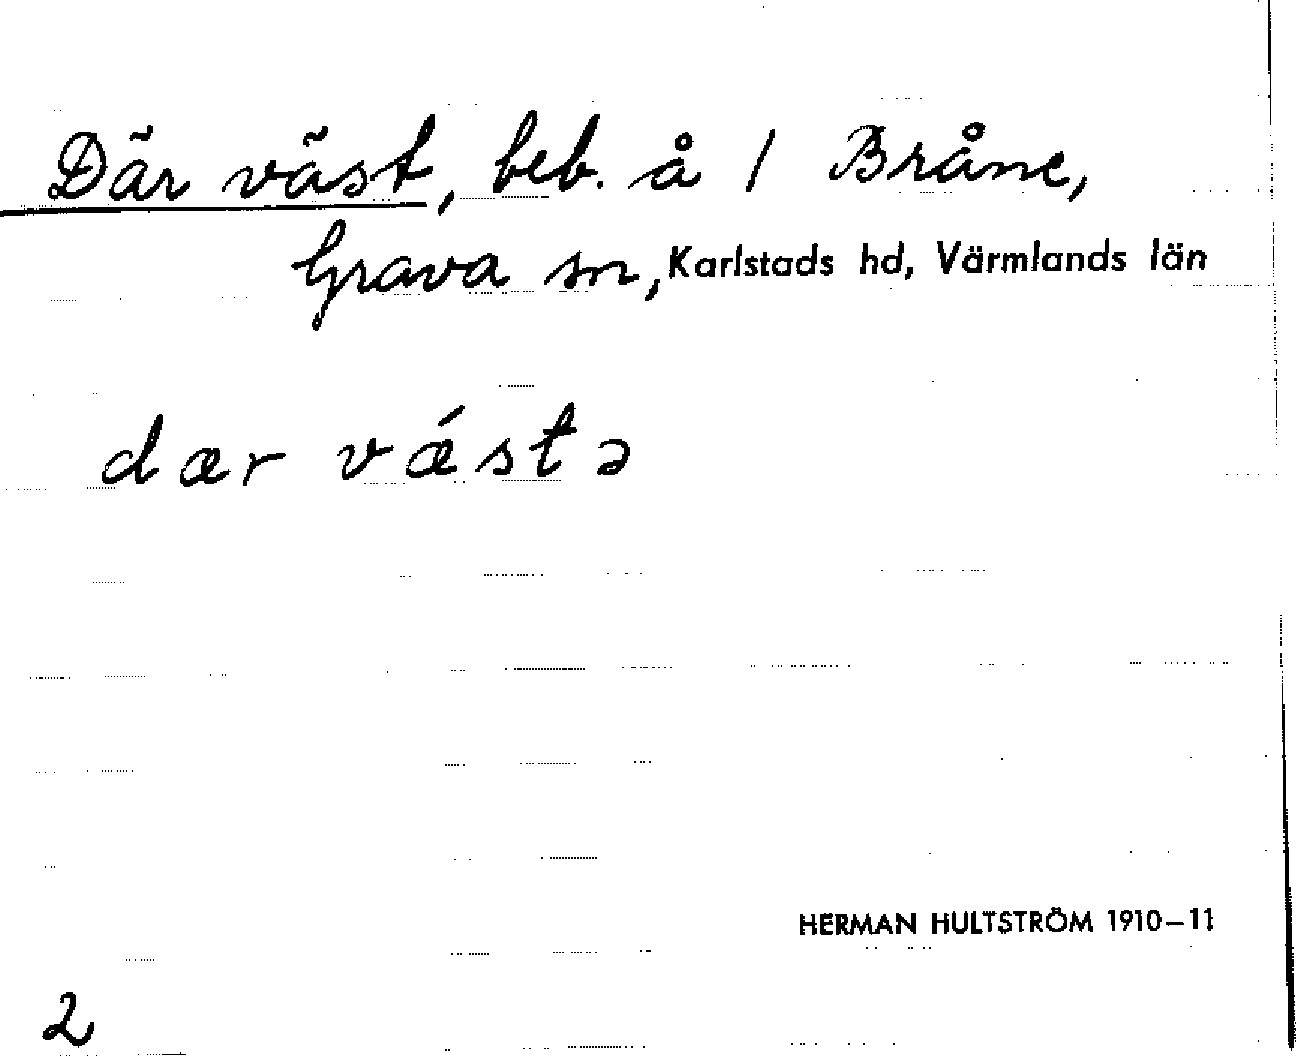 Där väst, beb. å 1 Bråne,
Grava sn, Karlstads hd, Värmlands län
dær vǽstə
HERMAN HULTSTRÖM 1910–11
2